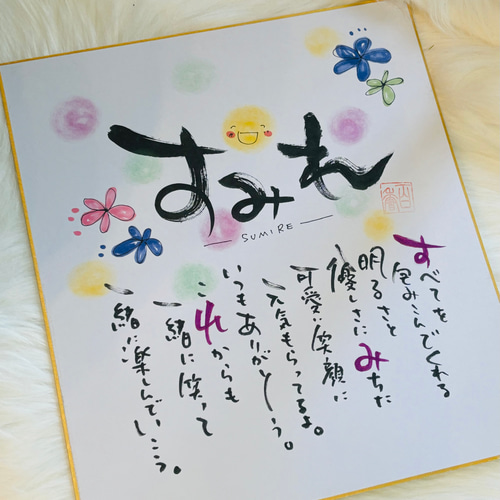 すみれ
SUMIRE
すべてを
包みこんでくれる
明るさと
優しさにみちた
可愛い笑顔に
元気もらってるよ。
いつもありがとう。
これからも
一緒に笑って
一緒に楽しんでいこう。